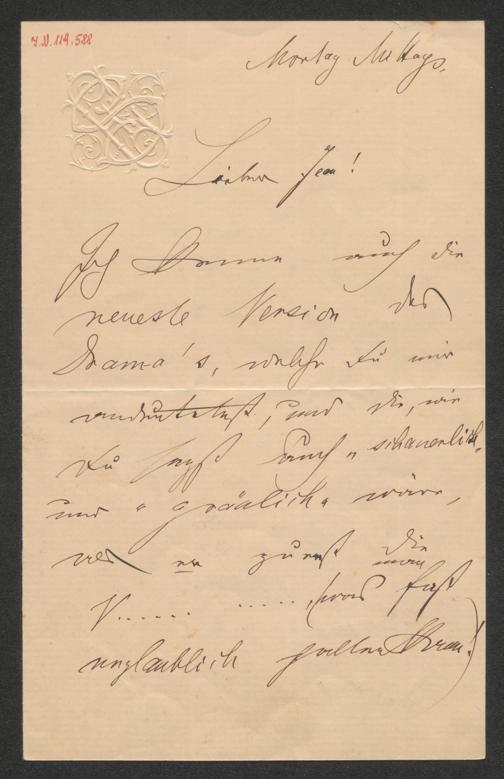 I.N. 119.588
Montag Mittags.
Lieber Jean!
Ich kenne auch die
neueste Version des
Drama's, welche Du mir
andeutetest, und die, wie
Du sagst auch „schauerlich"
und „gräulich" wäre,
wer zuerst die
V...... ..... (was fast
unglaublich